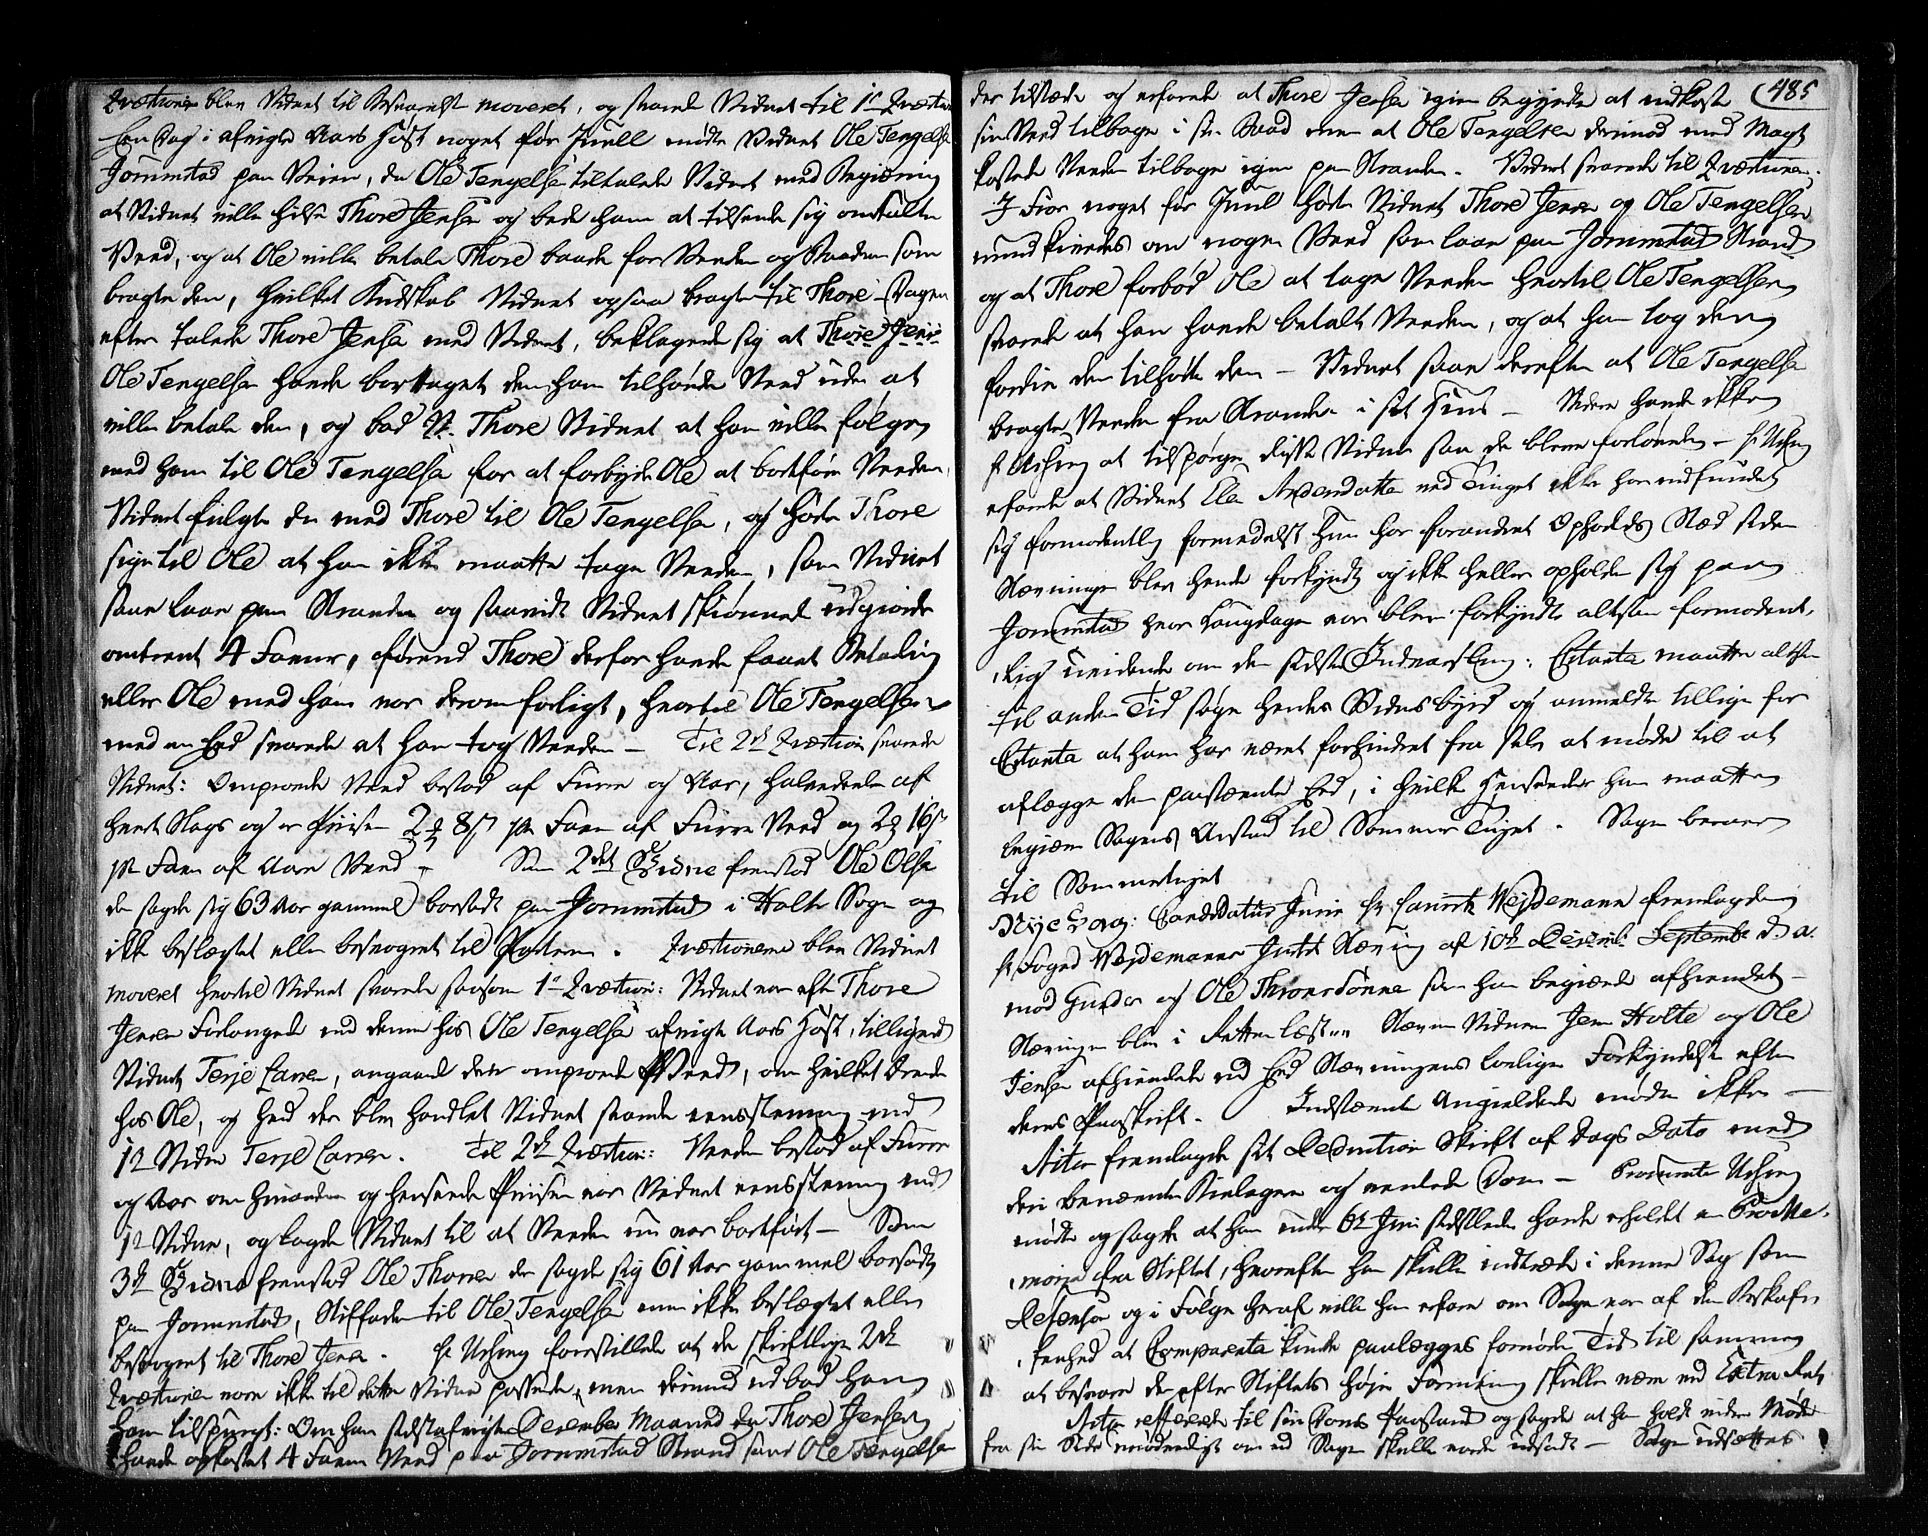 Qvæstioner blev Vidnet til Besvarelse moveret, og svarede Vidnet til 1te Qvæstion
Een Dag i afvigte Aars Høst noget før Juell mødte Vidnet Ole Tengelsen
Jommestad paa Veien, da Ole Tengelsen tiltalede Vidnet med Begiæring
at Vidnet ville hilse Thore Jensen og bede ham at tilsende sig omtalte
Veed, og at Ole ville betale Thore baade for Veeden og Baaden som
bragte den, hvilket Budskab Vidnet ogsaa bragte til Thore - Dagen
efter talede Thore Jensen med Vidnet, beklagede sig at Thore Jens
Ole Tengelsen havde borttaget den ham tilhørende Veed uden at
ville betale den, og bad Thore Vidnet at han ville følge
med ham til Ole Tengelsen for at forbyde Ole at bortføre Veeden,
Vidnet fulgte da med Thore til Ole Tengelsen, og hørte Thore
sige til Ole at han ikke maatte tage Veeden, som Vidnet
saae laae paa Stranden og saavidt Vidnet skiønnet udgiorde
omtrent 4 Favner, førend Thore derfor havde faaet Betaling
eller Ole med ham var derom forligt, hvortil Ole Tengelsen
med en Eed svarede at han tog Veeden - Til 2den Qvæstion svarede
Vidnet: Omprovede Veed bestod af Furre og Aar, halvdeelen af
hvert Slags og er Priisen 2 8 s pr Favn af Furre Veed og 2 16 s
pr Favn af Aare Veed - Som 2det Vidne fremstod Ole Olsen
der sagde sig 63 Aar gammel boesadt paa Jommestad i Halse Sogn og
ikke beslægtet eller besvogret til Parterne. Qvæstionerne blev Vidnet
moveret hvortil Vidnet svarede saasom 1te Qvæstion: Vidnet var efter Thore
Jensen Forlangende ved denne hos Ole Tengelsen afvigte Aars Høst, tilligemed
Vidnet Terje Larsen, angaaende den omprovede Veed, om hvilket Ærende
hos Ole, og hvad der blev handlet Vidnet svarede eensstemmig med
1te Vidne Terje Larsen. Til 2den Qvæstion: Veeden bestod af Furre
og Aar om hinanden og henseende Priisen var Vidnet eensstemmig med
1te Vidne, og lagde Vidnet til at Veeden nu var bortført - Som
3de Vidne fremstod Ole Thorsen der sagde sig 61 Aar gammel boesadt
paa Jommestad, Stiffader til Ole Tengelsen men ikke beslægtet eller
besvogret til Thore Jensen. Hr Usching forestillede at de skriftlige 2de
Qvæstioner vare ikke til dette Vidne passende, men derimod udbad han
ham tilspurgt: Om han sidstafvigte December Maaned da Thore Jensen
havde opkastet 4 Favne Veed paa Jommestad Strand saae Ole Tengelsen
485
der tilstæde og erfarede at Thore Jensen igien begyndte at indkaste
sin Veed tilbage i sin Baad men at Ole Tengelsen derimod med Magt
kastede Veeden tilbage igien paa Stranden. Vidnet svarede til Qvæstionen.
I Fior noget før Juul hørte Vidnet Thore Jensen og Ole Tengelsen
mundkivedes om nogen Veed som laae paa Jommestad Strand
og at Thore forbød Ole at tage Veeden hvortil Ole Tengelsen
svarede at han havde betalt Veeden, og at han tog den
fordie den tilhørte dem - Vidnet saae derefter at Ole Tengelsen
bragte Veeden fra Stranden i sit Huus - Videre havde ikke
Hr Usching at tilspørge disse Vidner saa de bleve forlovede - Hr Usching
erfarede at Vidnet Elen Andersdatter ved Tinget ikke har indfundet
sig formodentlig formedelst hun har forandret Opholds Stæd siden
Stævningen blev hende forkyndt og ikke heller opholder sig paa
Jommestad hvor Laugdagen var bleven forkyndt altsaa formodent-
lig uvidende om den sidste Indvarsling: Citanten maatte altsaa
til anden Tid søge hendes Vidnesbyrd og anmeldte tillige for
Citanten at ham har været forhindret fra selv at møde til at
aflægge den paastævnte Eed, i hvilke Henseender han maatte
begiære Sagens Anstand til Sommer Tinget. Sagen beroer
til Sommertinget
Nye Sag: Candidatus Juris Hr Lauritz Weydemann fremlagde
Hr Foged Weydemanns Stævning af 10de Decemb: Septembr d. a.
mod Gunder og Ole Thronsdønne som han begiærede afhiemlet -
Stævningen blev i Retten læst Stævne Vidnerne Jens Holte og Ole
Jensen afhiemlede ved Eed Stævningens lovlige Forkyndelse efter
deres Paaskrift. Indstævnte Angieldende mødte ikke -
Actor fremlagde sit Deduction Skrift af Dags Dato med
deri benævnte Bielager og ventede Dom - Procurator Usching
mødte og sagde at han under 6te Juni sidstleden havde erholdet en Promme-
moria fra Stiftet, hvorefter han skulle indtræde i denne Sag som
Defensor og i Følge heraf ville han erfare om Sagen var af den Beskaf-
fenhed at Comparenten kunde paalægges fornøden Tid til samme
at besvare da efter Stiftets høje Formening skulle være ved Extra Ret
Actor refererede til sin Doms Paastand og sagde at han holdt videre Møder
fra sin Side unødvendigt om end Sagen skulle vorde udsadt - Sagen udsættes